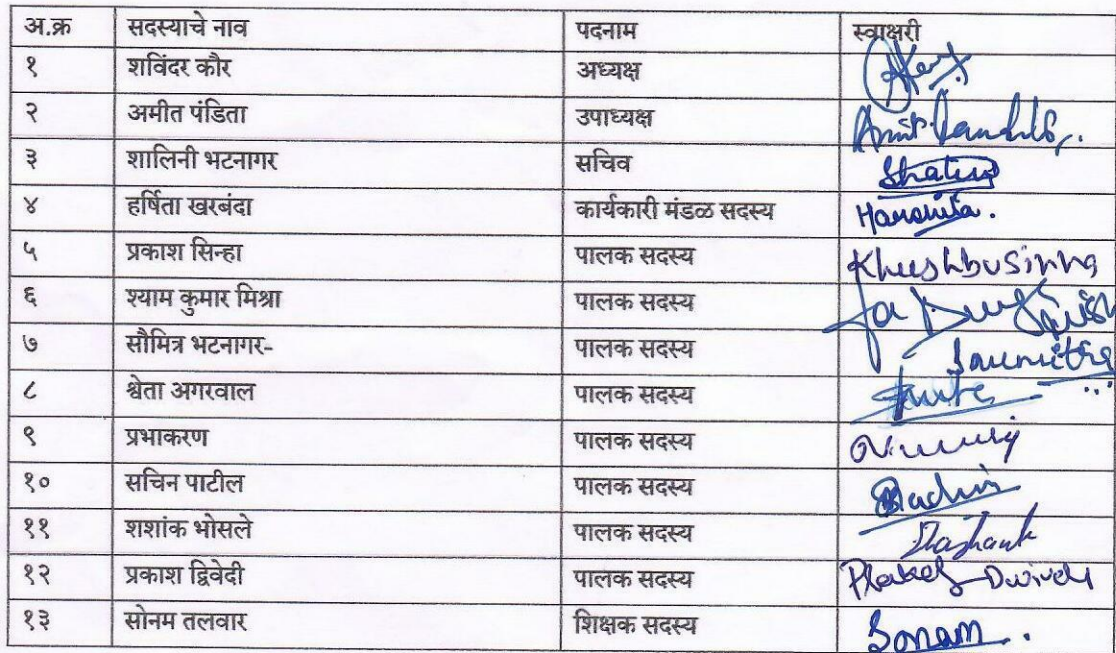 अ.क्र सदस्याचे नाव पदनाम स्वाक्षरी
१ शविंदर कौर अध्यक्ष
२ अमीत पंडिता उपाध्यक्ष Amit
३ शालिनी भटनागर सचिव Shalini
४ हर्षिता खरबंदा कार्यकारी मंडळ सदस्य Harshita.
५ प्रकाश सिन्हा पालक सदस्य Khushbu Sinha
६ श्याम कुमार मिश्रा पालक सदस्य
७ सौमित्र भटनागर- पालक सदस्य Saumitra
८ श्वेता अगरवाल पालक सदस्य
९ प्रभाकरण पालक सदस्य
१० सचिन पाटील पालक सदस्य Sachin
११ शशांक भोसले पालक सदस्य Shashank
१२ प्रकाश द्विवेदी पालक सदस्य Dwivedi
१३ सोनम तलवार शिक्षक सदस्य Sonam.